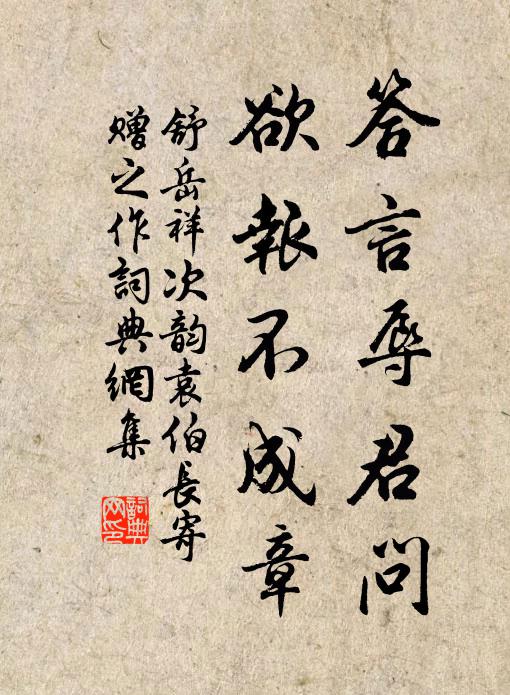 答言辱君问
欲報不成章
舒岳祥次韵袁伯長寄
赠之作詞典網集
詞典网印